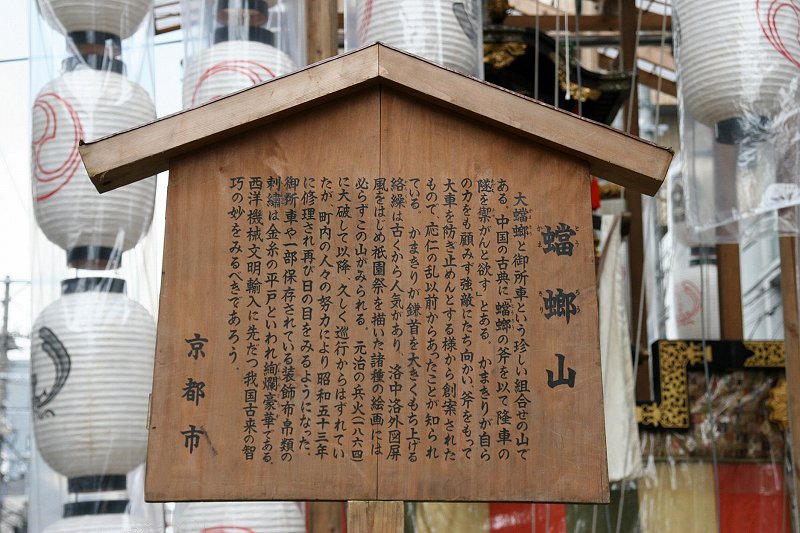 蟷螂山
大蟷螂と御所車という珍しい組合せの山で
ある。中国の古典に「蟷螂の斧を以て隆車の
隧を禦がんと欲す」とある。かまきりが自ら
の力をも顧みず強敵にたち向かい、斧をもって
大車を防ぎ止めんとする様から創案された
もので、応仁の乱以前からあったことが知られ
ている。かまきりが鎌首を大きくもち上げる
絡繰は古くから人気があり、洛中洛外図屏
風をはじめ祇園祭を描いた諸種の絵画には
必らずこの山がみられる。元治の兵火(一八六四)
に大破して以降、久しく巡行からはずれてい
たが、町内の人々の努力により昭和五十三年
に修理され再び日の目をみるようになった。
御所車や一部保存されている装飾布帛類の
刺繍は金糸の平戸といわれ絢爛豪華である。
西洋機械文明輸入に先だつ、我国古来の智
巧の妙をみるべきであろう。
京都市